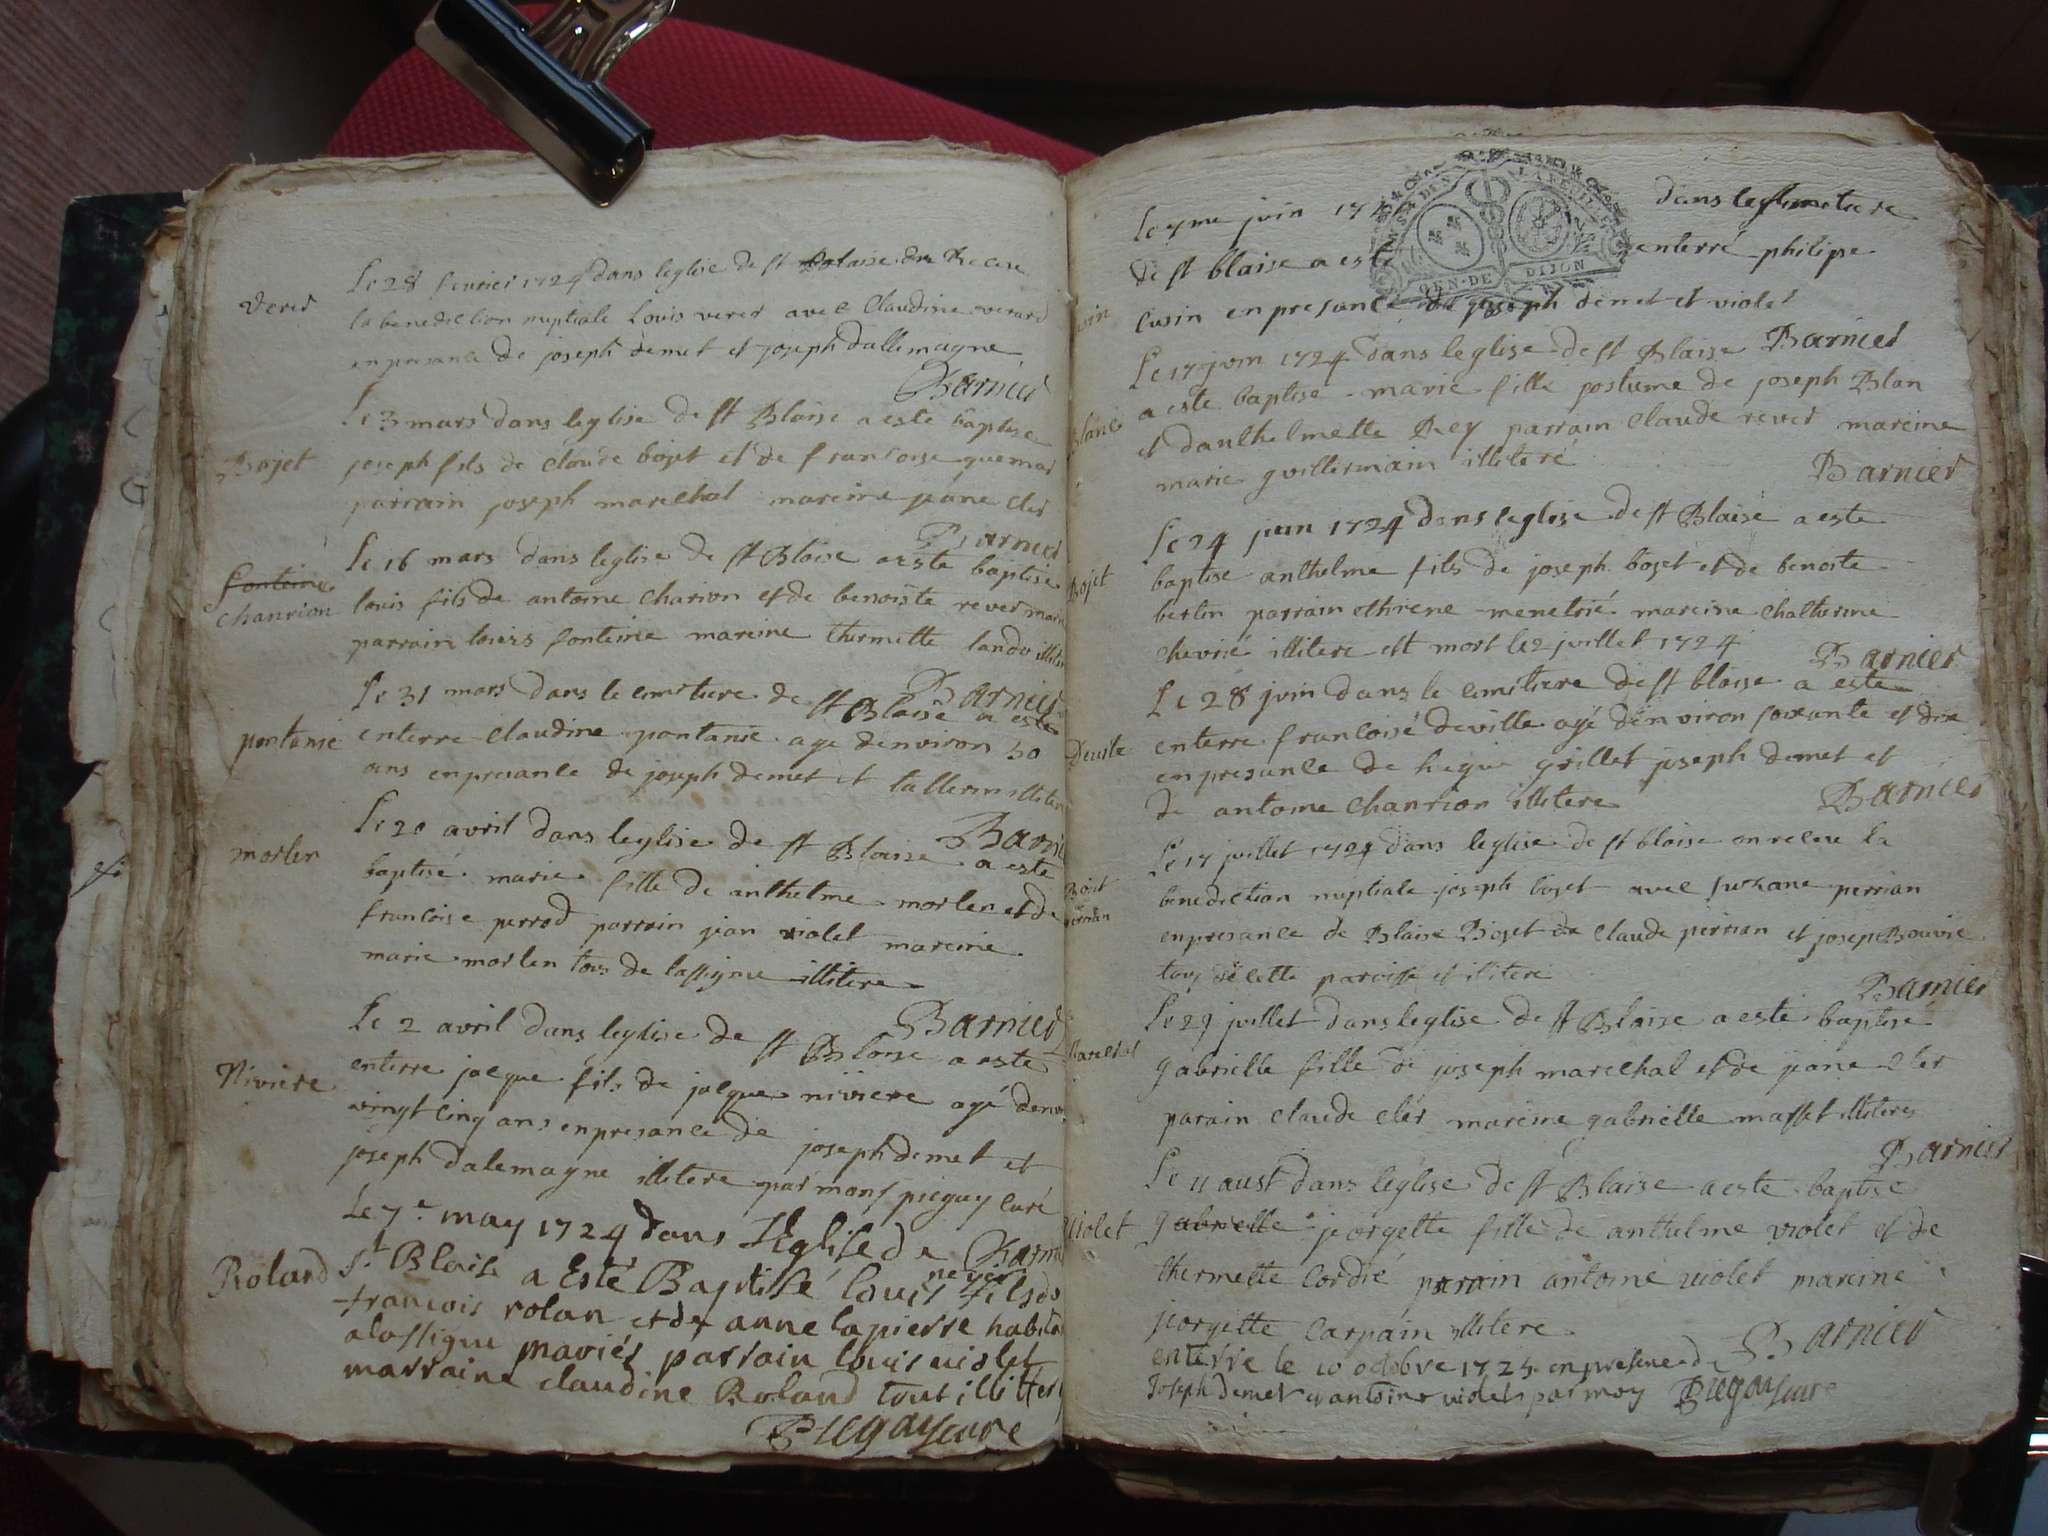 Le 28 fevrier 1724 dans leglise de st Blaise on Receu
verer
la benediction nuptiale Louis verer avec Claudine verard
en presance de joseph demet et joseph dallemagne
Barnier
Le 3 mars dans leglise de st Blaise a esté baptise
Bojet
joseph fils de claude bojet et de francoise quemar
parrain joseph marechal mareine jeane cler
Barnier
Le 16 mars dans leglise de st Blaise a este baptise
fonteine
chanrion
louis fils de antoine charion et de benoiste rever
parrain louis fonteine mareine thermette landó
Barnier
Le 31 mars dans le cimetiere de st Blaise a este
pontanie
enterre claudine pontanie age denviron 50
ans en presance de joseph demet et
Barnier
Le 20 avril dans leglise de st Blaise a este
morlen
baptisé marie fille de anthelme morlen et de
francoise perrod parrain jean violet mareine
marie morlen tous de lassigneu illitere
Barnier
Le 2 avril dans leglise de st Blaise a este
Niviere
enterre jacque fils de jacque niviere agé
vingt cinq ans en presance de joseph demet et
joseph dalemagne illitere par mons piegay curé
Barnier
Le 7e may 1724 dans l'Eglise de
Roland
St Blaise a Esté Baptisé louis fils de
francois rolan et de anne lapierre
a lassigneu mariés parrain louis violet
marraine claudine Roland tout illittere
Piegay cure
Le 7me juin dans le simetiere
de st blaise a esté enterré philipe
cusin en presance de joseph demet et violet
Barnier
Le 17 juin 1724 dans leglise de st Blaise
Blanc
a este baptise marie fille postume de joseph Blan
et danthelmette Rey parrain claude rever mareine
marie guillermain illiteré
Barnier
Le 24 juin 1724 dans leglise de st Blaise a este
Bojet
baptise anthelme fils de joseph bojet et de benoite
bertin parrain menetrié mareine chatherine
chevrié illitere est mort le 2 juillet 1724
Barnier
Le 28 juin dans le cimetiere de st blaise a este
enterre francoise deville agé denviron soixante et dix
en presance de grillet joseph demet et
de antoine chanrion illitere
Barnier
Le 17 juillet 1724 dans leglise de st blaise on receu la
Bojet
perrian
benediction nuptiale joseph bojet avec suzane perrian
en presance de Blaise Bojet de claude perrian et josep Bouvié
tous de cette paroisse et illitere
Barnier
Le 29 juillet dans leglise de st Blaise a esté baptisé
Marechal
gabrielle fille de joseph marechal et de jeane cler
parain claude clér mareine gabrielle masset illiteres
Barnier
Le 11 aust dans leglise de st Blaise a este baptise
Violet
gabrielle jeorgette fille de anthelme violet et de
thermette cordié parain antoine violet mareine
jeorgette carpain illitere
Barnier
enterre le 10 octobre 1725 en presence de
Joseph demet et antoine violet par moy Piegay cure
GEN·DE DIJON